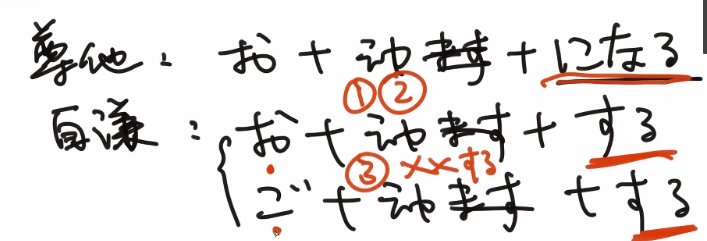 尊他：お＋动ます＋になる
①②
自谦：お＋动ます＋する
③ ××する
ご＋动ます＋する